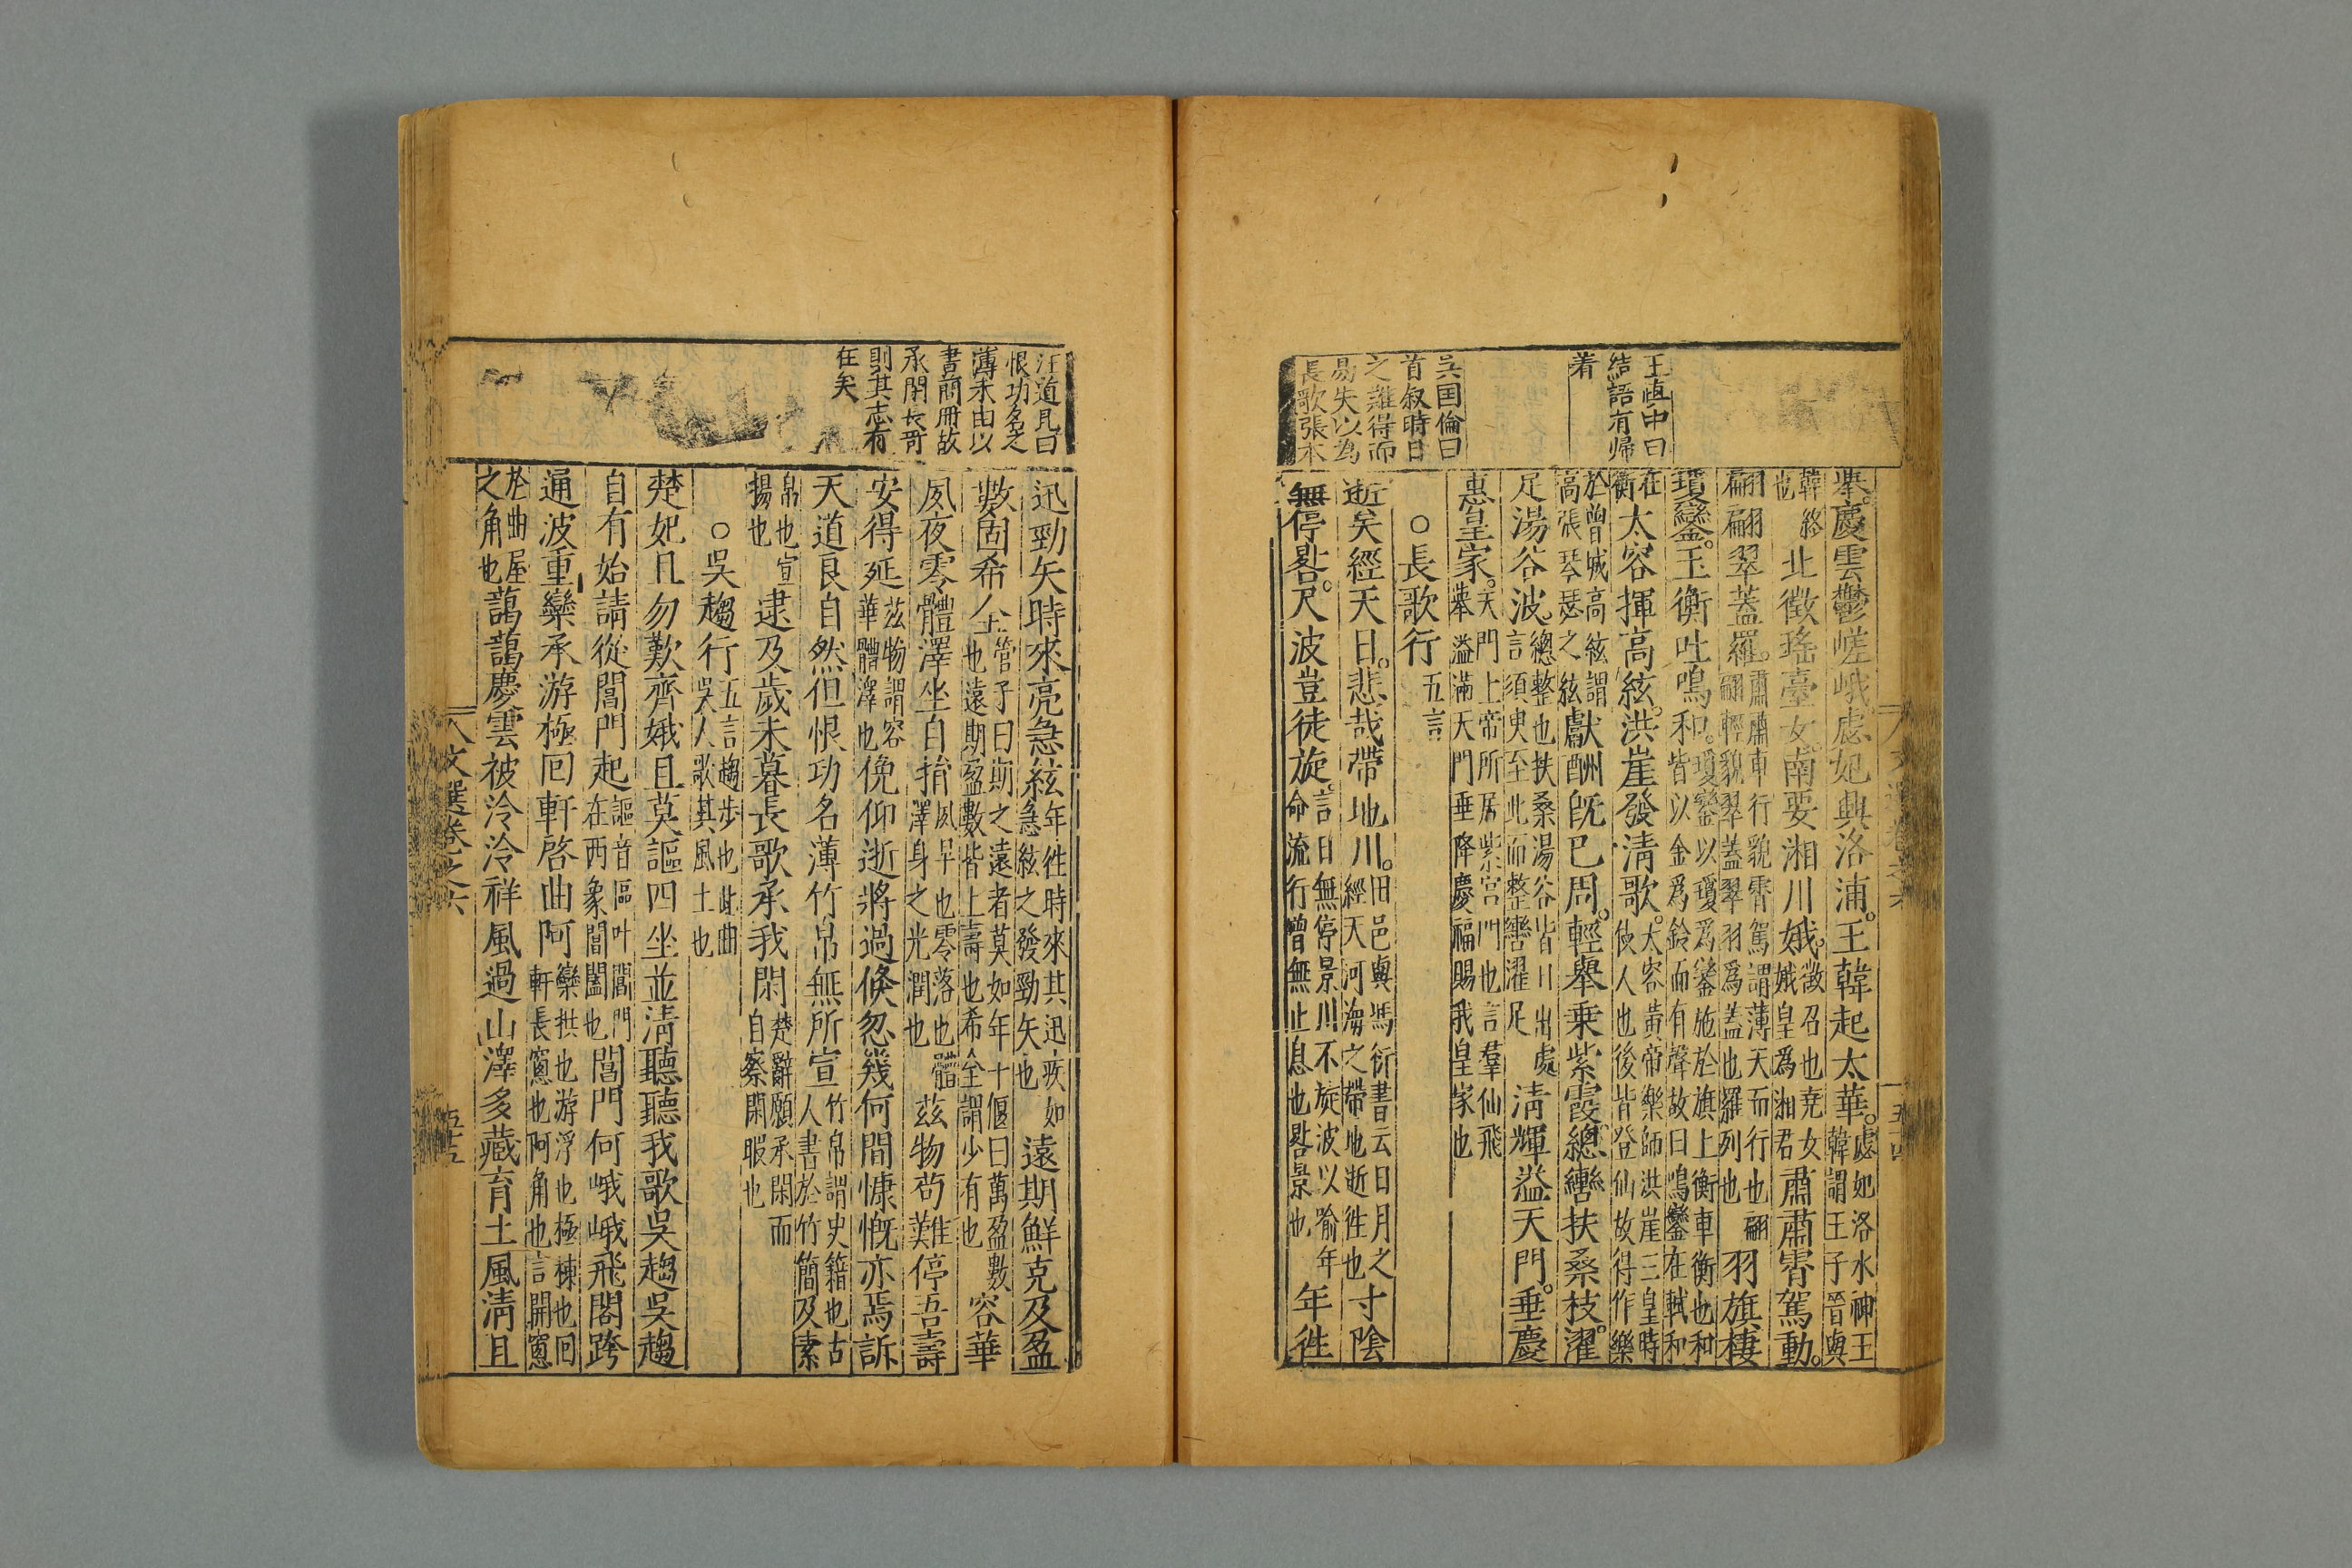 王慎中曰
結語有帰
着
吳国倫曰
首叙時日
之難得而
易失以為
長歌張本
舉。慶雲鬱嵯峨。虙妃興洛浦。王韓起太華。虙妃洛水神王
韓謂王子晉與
韓終
也北徵瑤臺女。南要湘川娥。徵召也堯女
娥皇爲湘君肅肅霄駕動。
翩翩翠蓋羅。肅肅車行貌霄駕謂薄天而行也翩
翩輕貌翠蓋翠羽爲蓋也羅列也羽旗棲
瓊鑾。玉衡吐鳴和。瓊鑾以瓊爲鑾施於旗上衡車衡也和
皆以金爲鈴而有聲故曰鳴鑾在軾和
在
衡太容揮高絃。洪崖發清歌。太容黃帝樂師洪崖三皇時
伎人也後皆登仙故得作樂
於曾城高絃謂
高張琴瑟之絃獻酬既已周。輕舉乘紫霞。總轡扶桑枝。濯
足湯谷波。總整也扶桑湯谷皆日出處
言須臾至此而整轡濯足清輝溢天門。垂慶
惠皇家。天門上帝所居紫宮門也言羣仙飛
轝溢滿天門垂降慶福賜我皇家也
○長歌行五言
逝矣經天日。悲哉帶地川。旧邑與馮衍書云日月之
經天河海之帶地逝徃也寸陰
無停晷。尺波豈徒旋。言日無停景川不旋波以喻年
命流行曽無止息也晷景也年徃
汪道昆曰
恨功名之
薄未由以
書簡冊故
承閒長哥
則其志有
在矣
迅勁矢時來亮急絃年徃時來其迅疾如
急絃之發勁矢也遠期鮮克及盈
數固希全管子曰斯之遠者莫如年十偃曰萬盈數
也遠期盈數皆上壽也希全謂少有也容華
夙夜零體澤坐自捐夙早也零落也體
澤身之光潤也茲物苟難停吾壽
安得延茲物謂容
華體澤也俛仰逝將過倏忽幾何間慷慨亦焉訴
天道良自然但恨功名薄竹帛無所宣竹帛謂史籍也古
人書於竹簡及素
帛也宣
揚也逮及歲未暮長歌承我閑楚辭願承閑而
自察閑暇也
○吳趨行五言趨步也此曲
吳人歌其風土也
楚妃且勿歎齊娥且莫謳四坐並清聽聽我歌吳趨吳趨
自有始請從閶門起謳音區叶閶門
在西象閶闔也閶門何峨峨飛閣跨
通波重欒承游極囘軒啓曲阿欒拱也游浮也極棟也囘
軒長窻也阿角也言開窻
於曲屋
之角也藹藹慶雲被泠泠祥風過山澤多藏育土風淸且
文選卷之六